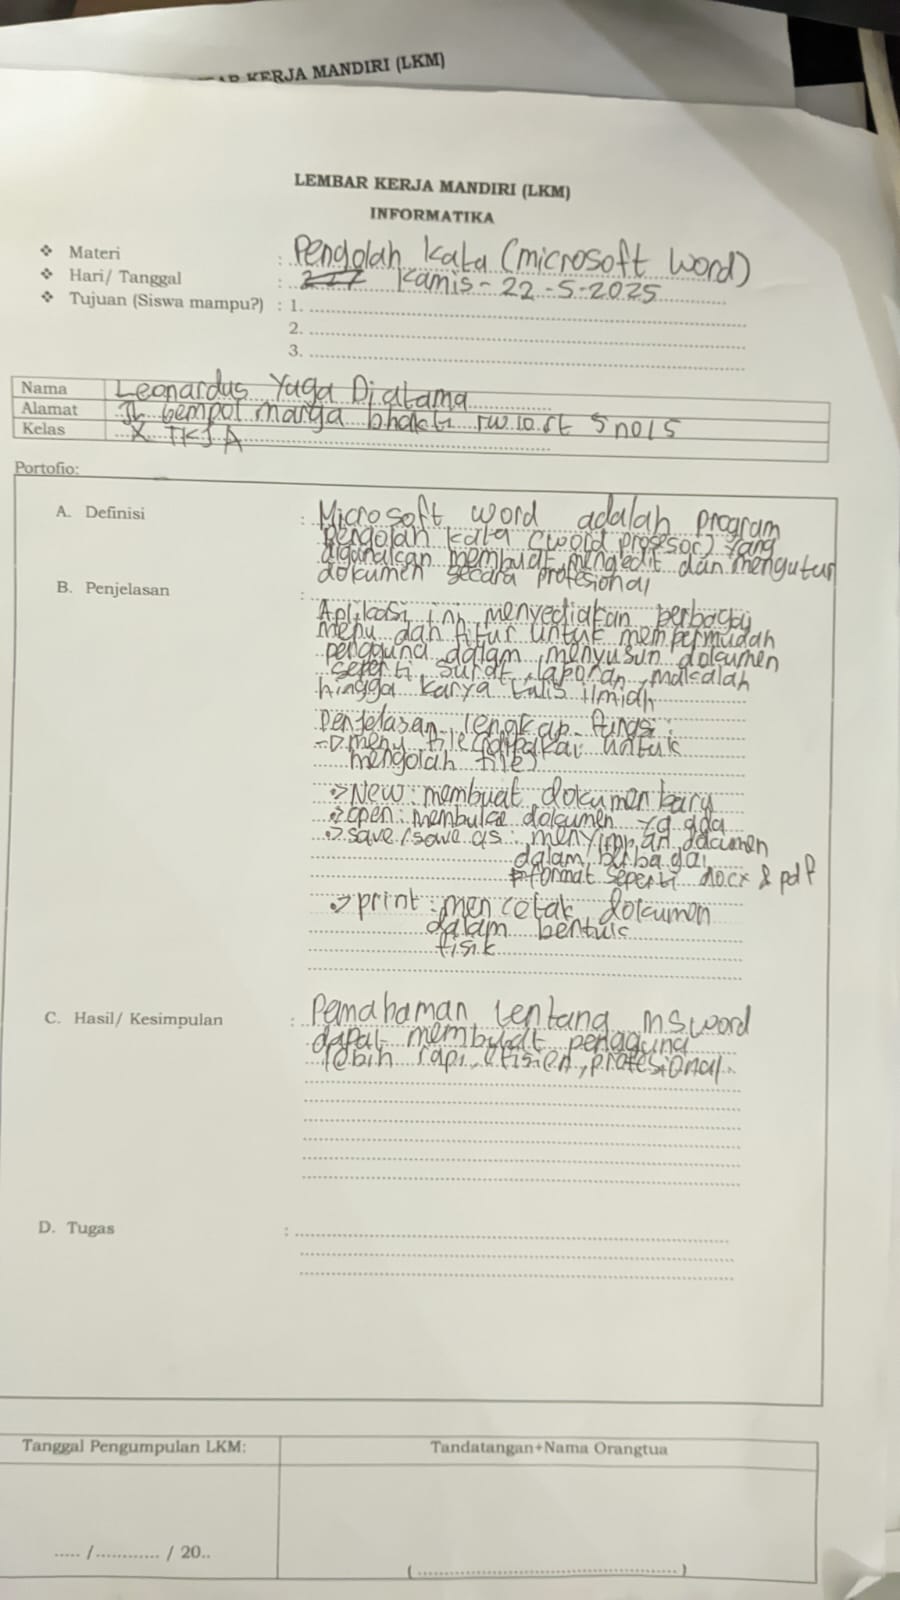 KERJA MANDIRI (LKM)
LEMBAR KERJA MANDIRI (LKM)
INFORMATIKA
❖ Materi : Pengolah kata (microsoft word)
❖ Hari/ Tanggal : Kamis - 22 - 5 - 2025
❖ Tujuan (Siswa mampu?) : 1.
2.
3.
Nama Leonardus Yuga Diatama
Alamat JL gempol marga bhakti rw.10.rt 5 no 15
Kelas X TKJ A
Portofio:
A. Definisi : Microsoft word adalah program
pengolah kata (word prosesor) yang
digunakan membuat, mengedit dan mengatur
dokumen secara profesional
B. Penjelasan :
Aplikasi ini menyediakan berbagai
menu dan fitur untuk mempermudah
pengguna dalam menyusun dokumen
seperti surat, laporan, makalah
hingga karya tulis ilmiah
Penjelasan lengkap fungsi :
-> menu file (dipakai untuk
mengolah file)
-> New : membuat dokumen baru
-> open : membuka dokumen yg ada
-> save / save as : menyimpan documen
dalam berbagai
format seperti docx & pdf
-> print : mencetak dokumen
dalam bentuk
fisik
C. Hasil/ Kesimpulan : Pemahaman tentang ms word
dapat membuat pengguna
lebih rapi, efisien, profesional.
D. Tugas :
Tanggal Pengumpulan LKM: Tandatangan+Nama Orangtua
..... /............ / 20.. (................................................)